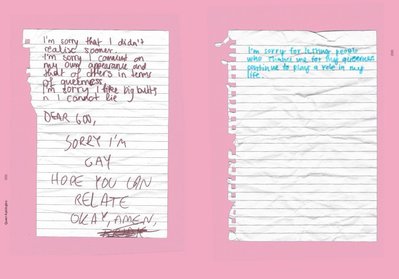 I'm sorry that I didn't
realise sooner.
I'm sorry I comment on
my own appearance and
that of others in terms
of queerness.
I'm sorry I like big butts
n I cannot lie
DEAR GOD,
SORRY I'M
GAY
HOPE YOU CAN
RELATE
OKAY, AMEN,
I'm sorry for letting people
who me for my queerness
continue to play a role in my
life.